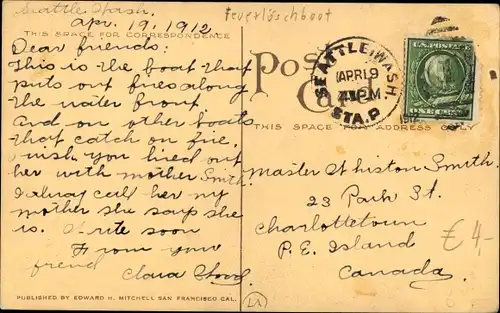 Seattle Wash.
Apr. 19, 1912
Feuerlöschboot
THIS SPACE FOR CORRESPONDENCE
Dear friends:
This is the boat that
puts out fires along
the water front
and on other boats
that catch on fire.
I wish you lived out
her with mother Smith.
I alway call her my
mother she says she
is. Write soon
From your
friend
Clara
PUBLISHED BY EDWARD H. MITCHELL SAN FRANCISCO CAL.
Post
Card
THIS SPACE FOR ADDRESS ONLY
SEATTLE, WASH.
APR 19
PM
STA. P
U.S. POSTAGE
ONE CENT
Master Whiston Smith
23 Park St.
Charlottetown
P. E. Island
Canada
€ 4,-
LA